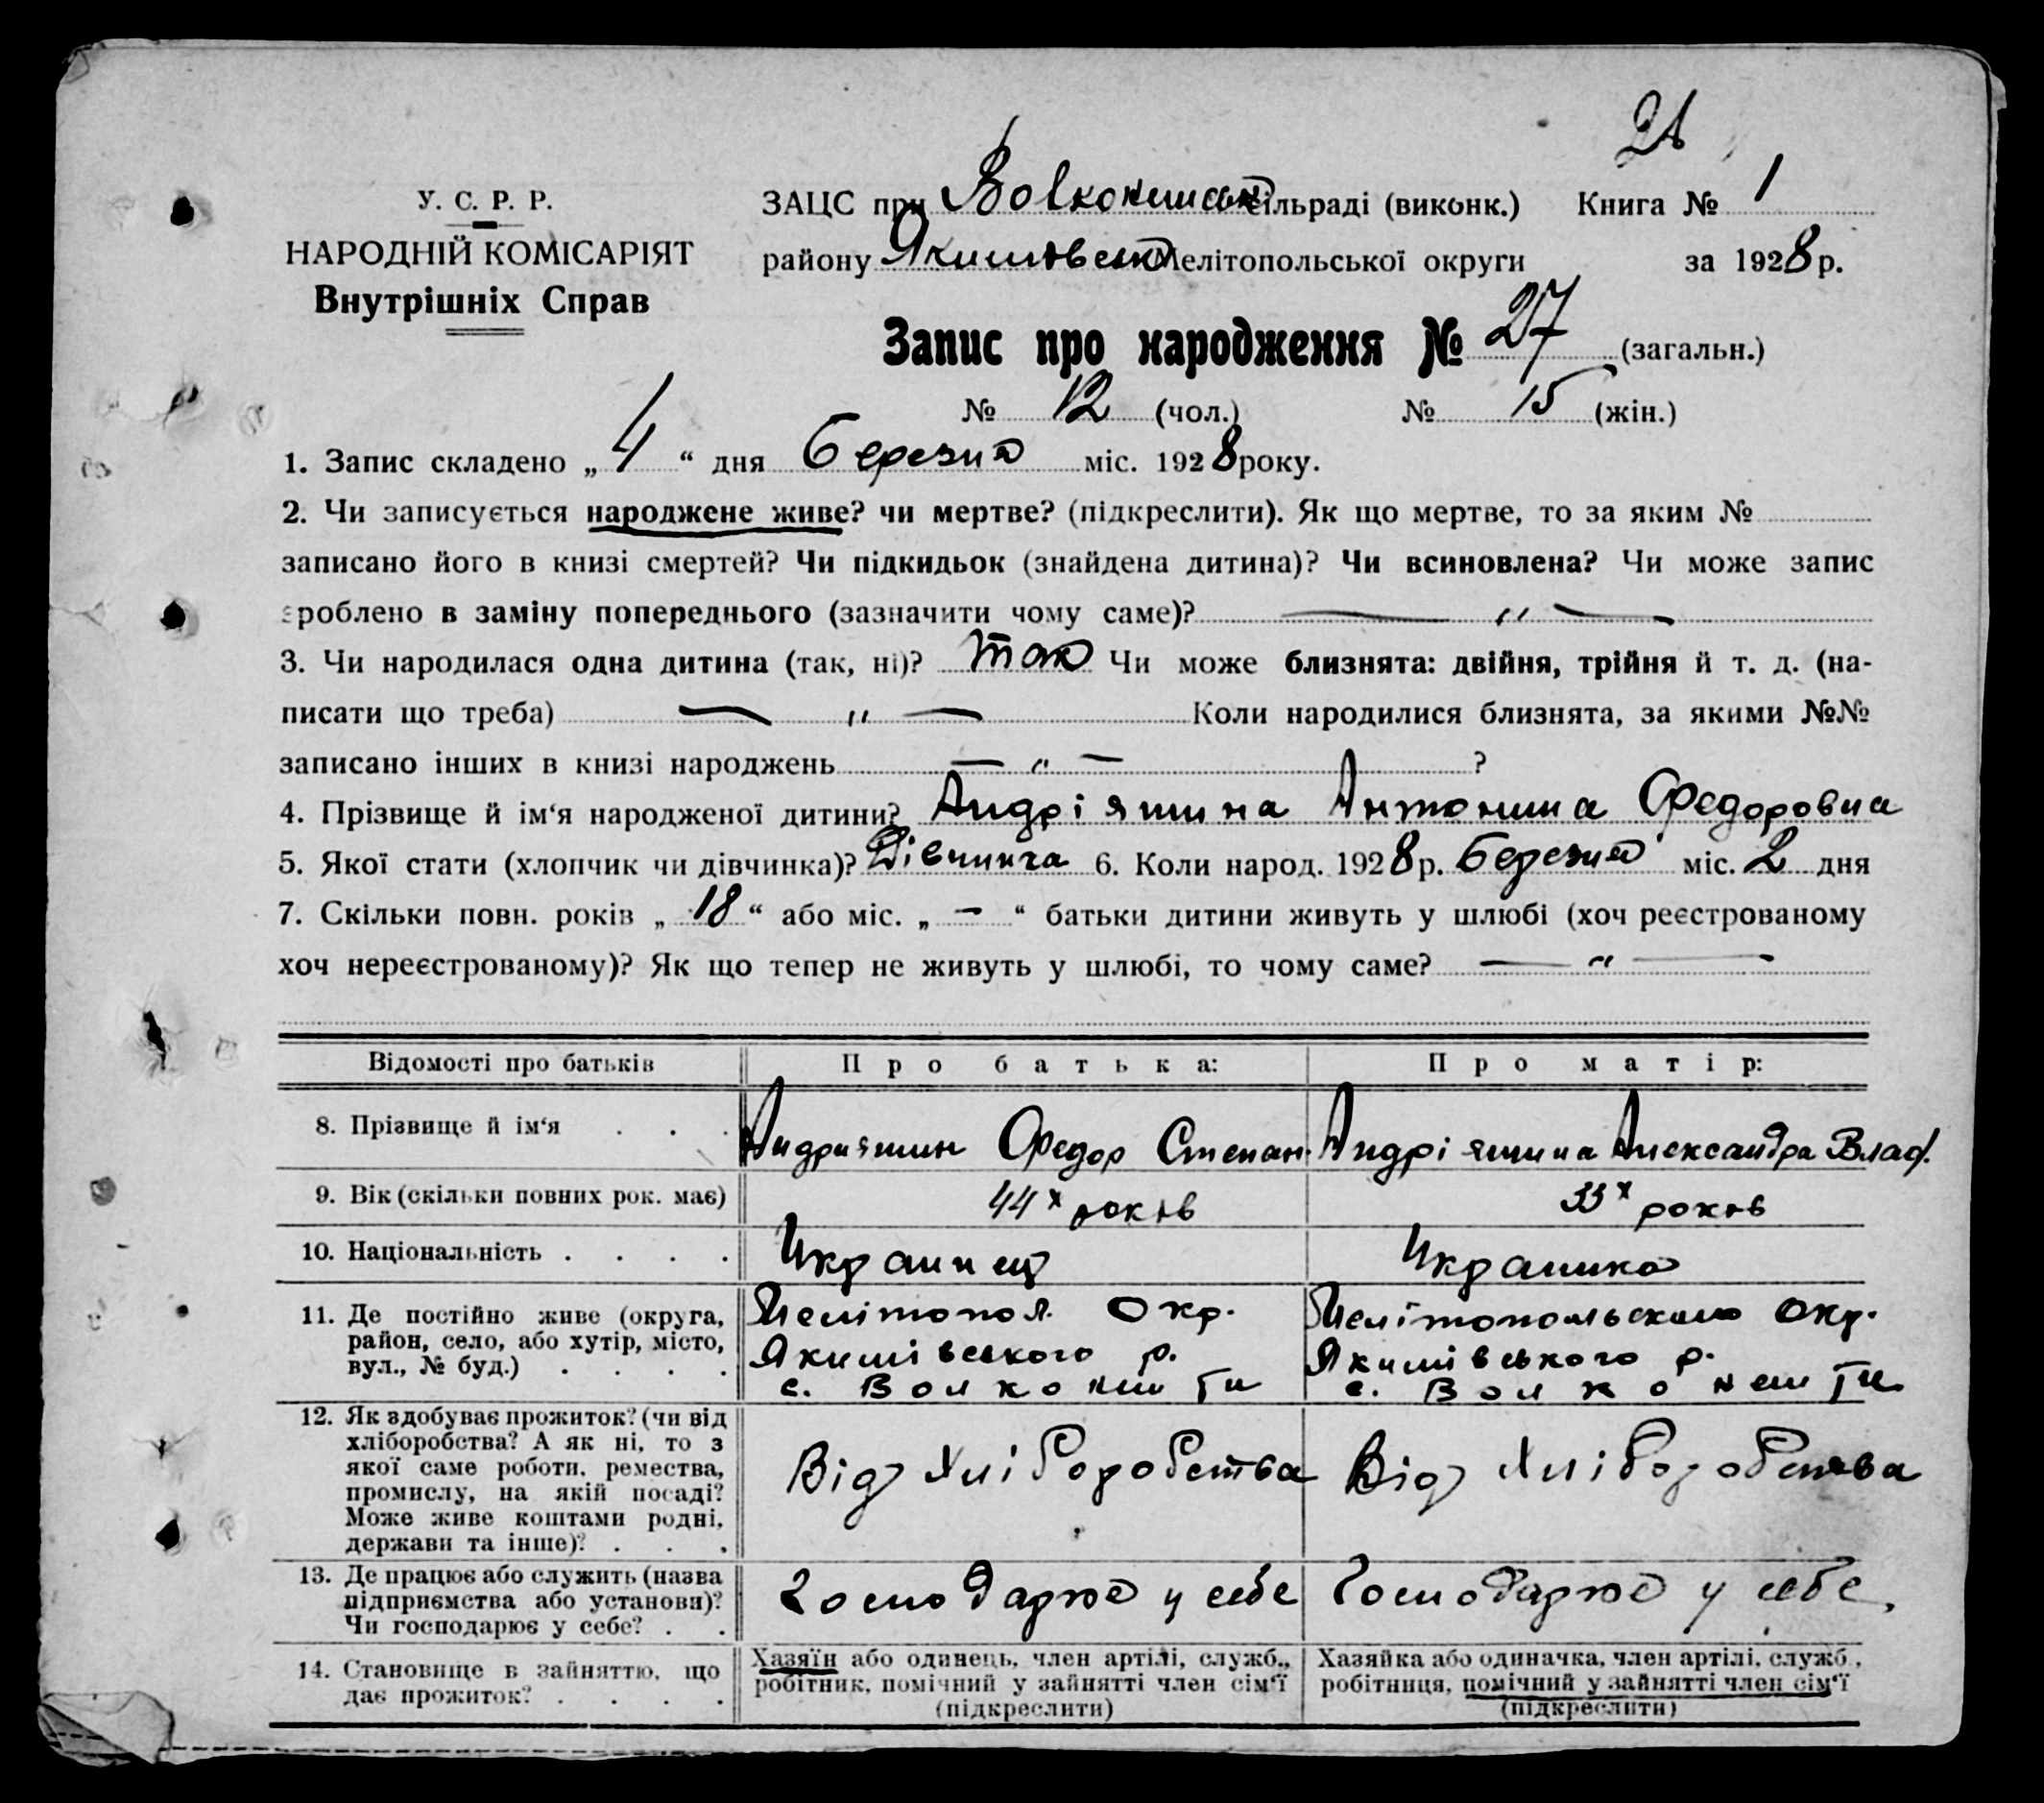 21
У. С. Р. Р.
НАРОДНІЙ КОМІСАРІЯТ
Внутрішніх Справ
ЗАЦС при сільраді (виконк.) Книга № 1
району Якимівськ Мелітопольської округи за 1928 р.
Запис про народження № 27 (загальн.)
№ 12 (чол.) № 15 (жін.)
1. Запис складено „ 4 “ дня Березня міс. 1928 року.
2. Чи записується народжене живе? чи мертве? (підкреслити). Як що мертве, то за яким №
записано його в книзі смертей? Чи підкидьок (знайдена дитина)? Чи всиновлена? Чи може запис
зроблено в заміну попереднього (зазначити чому саме)? — „ —
3. Чи народилася одна дитина (так, ні)? так Чи може близнята: двійня, трійня й т. д. (на-
писати що треба) — „ — Коли народилися близнята, за якими №№
записано інших в книзі народжень — „ — ?
4. Прізвище й ім‘я народженої дитини? Андріяшина Антонина Федоровна
5. Якої стати (хлопчик чи дівчинка)? Дівчинка 6. Коли народ. 1928 р. Березня міс. 2 дня
7. Скільки повн. років „ 18 “ або міс. „ — “ батьки дитини живуть у шлюбі (хоч реєстрованому
хоч нереєстрованому)? Як що тепер не живуть у шлюбі, то чому саме? — „ —
Відомості про батьків Про батька: Про матір:
8. Прізвище й ім‘я . . . Андрияшин Федор Степан. Андріяшина Александра Влад.
9. Вік (скільки повних рок. має) 44х років 33х років
10. Національність . . . . Украинец Украинка
11. Де постійно живе (округа,
район, село, або хутір, місто,
вул., № буд.) . . . .
Мелітопол. Окр.
Якимівського р.
с.
Мелітопольского Окр.
Якимівського р.
с.
12. Як здобуває прожиток? (чи від
хліборобства? А як ні, то з
якої саме роботи, ремества,
промислу, на якій посаді?
Може живе коштами родні,
держави та інше)? . . .
Від Хліборобства Від Хліборобства
13. Де працює або служить (назва
підприємства або установи)?
Чи господарює у себе? . .
Господарює у себе Господарює у себе.
14. Становище в зайняттю, що
дає прожиток? . . . .
Хазяїн або одинець, член артілі, служб.,
робітник, помічний у зайнятті член сім‘ї
(підкреслити)
Хазяйка або одиначка, член артілі, служб.,
робітниця, помічний у зайнятті член сім‘ї
(підкреслити)